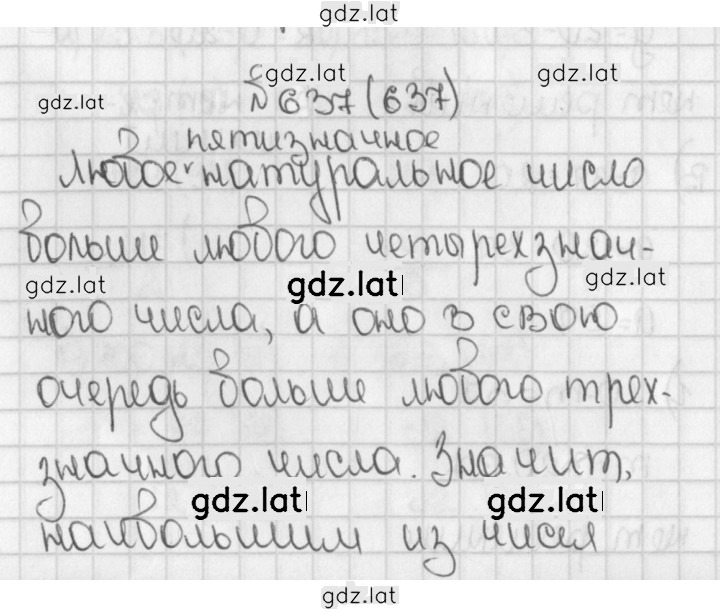 gdz.lat
gdz.lat
gdz.lat
gdz.lat
№ 637 (637)
пятизначное
Любое натуральное число
больше любого четырехзнач-
gdz.lat
gdz.lat
gdz.lat
ного числа, а оно в свою
очередь больше любого трех-
значного числа. Значит,
gdz.lat
gdz.lat
наибольшим из чисел
gdz.lat